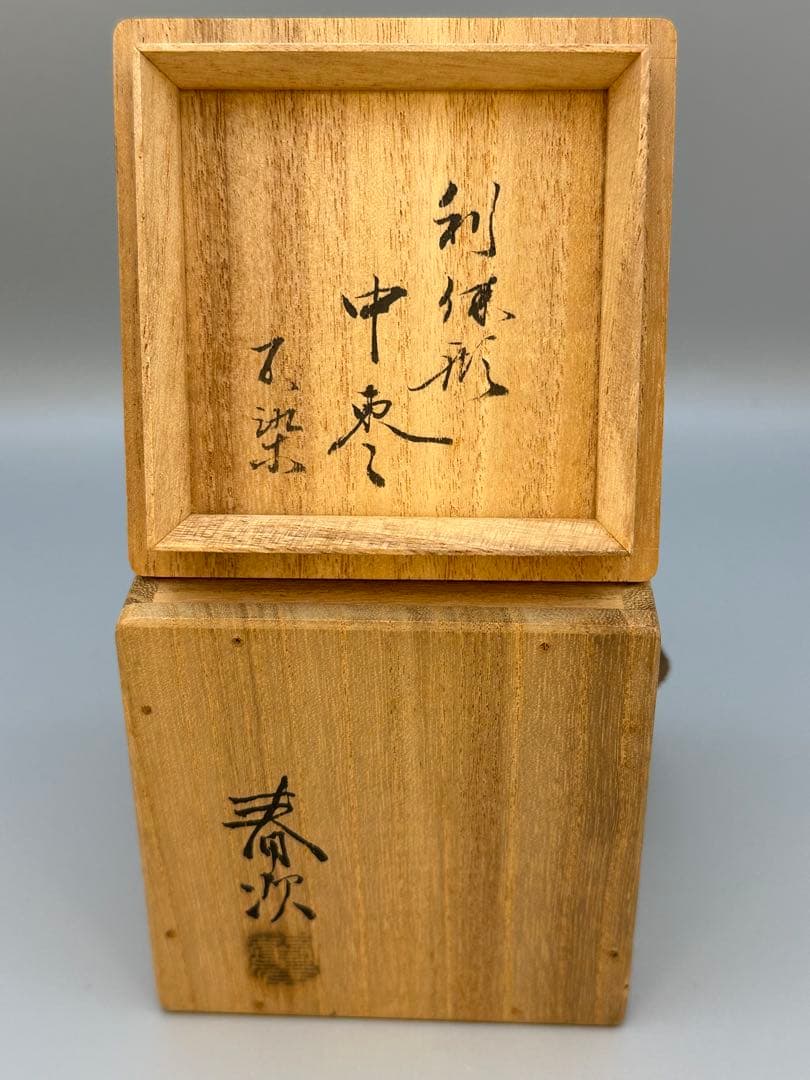 利休形
中棗
染
春次